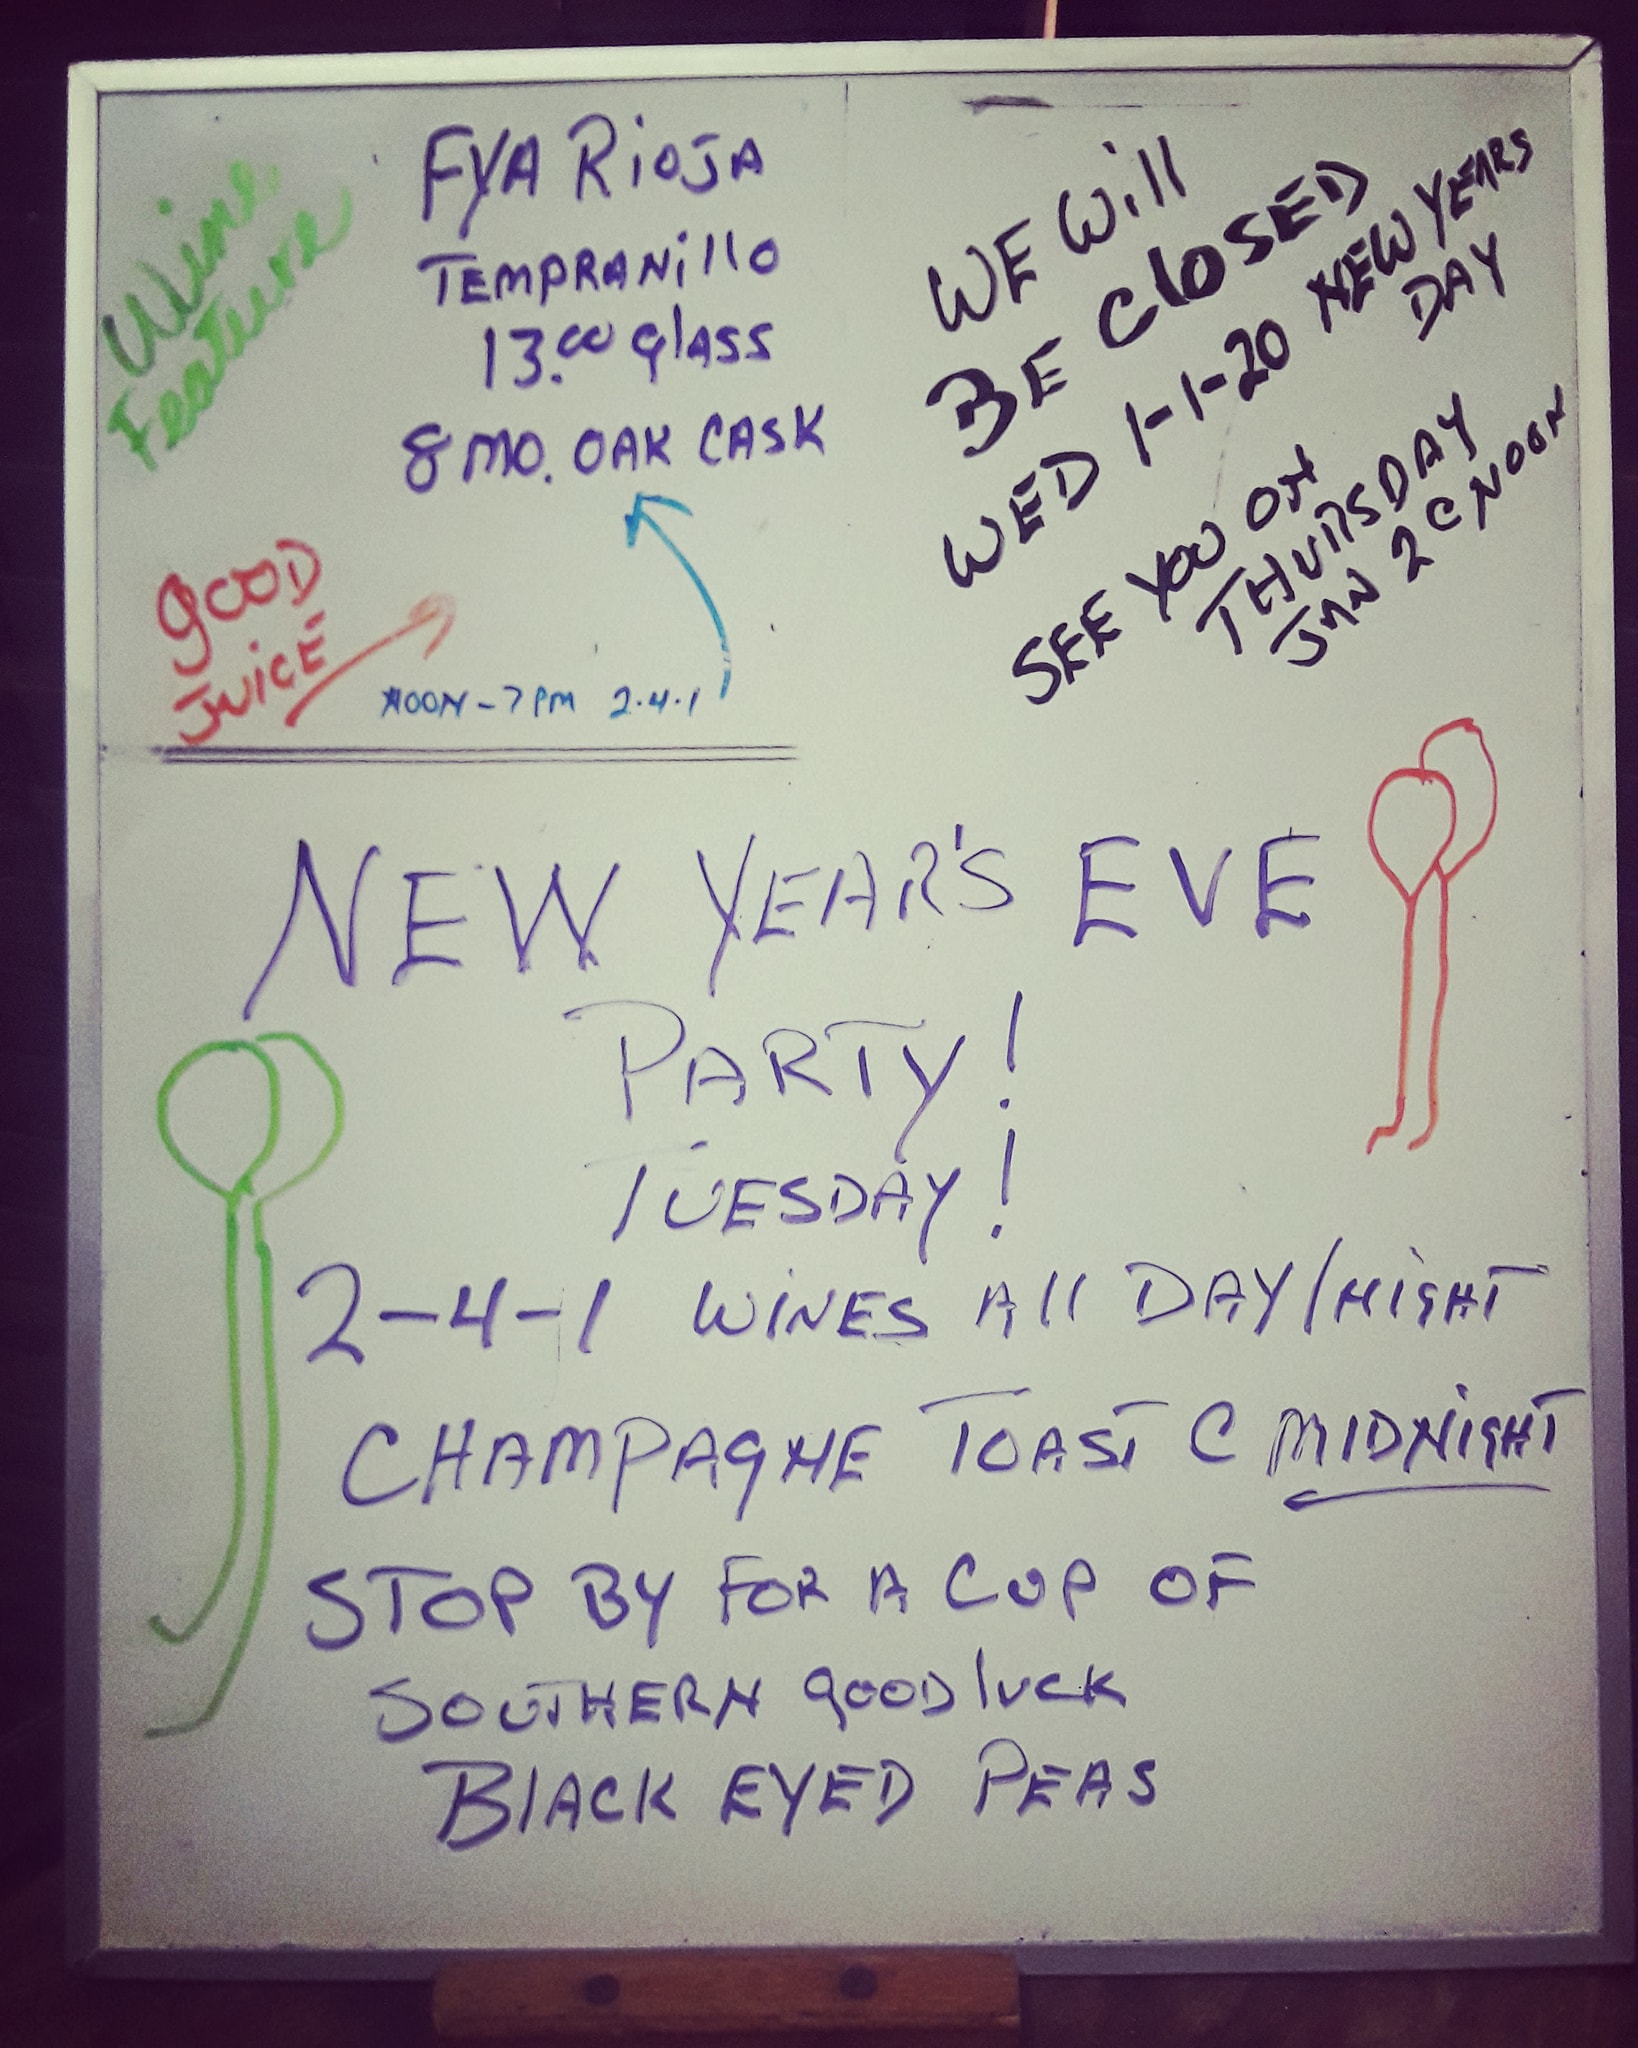 Wine
Feature
FYA RiOJA
TEMPRANillO
13.00 glASS
8 MO. OAK CASK
gOOD
JUICE
NOON - 7 PM 2.4.1
WE Will
BE ClOSED
WED 1-1-20 NEW YEARS
DAY
SEE YOU ON
THURSDAY
JAN 2 C NOON
NEW YEAR'S EVE
PARTY!
TUESDAY!
2-4-1 WINES All DAY/NIGHT
CHAMPAGNE TOAST C MIDNIGHT
STOP BY FOR A CUP OF
SOUTHERN gOOD lUCK
BlACK EYED PEAS